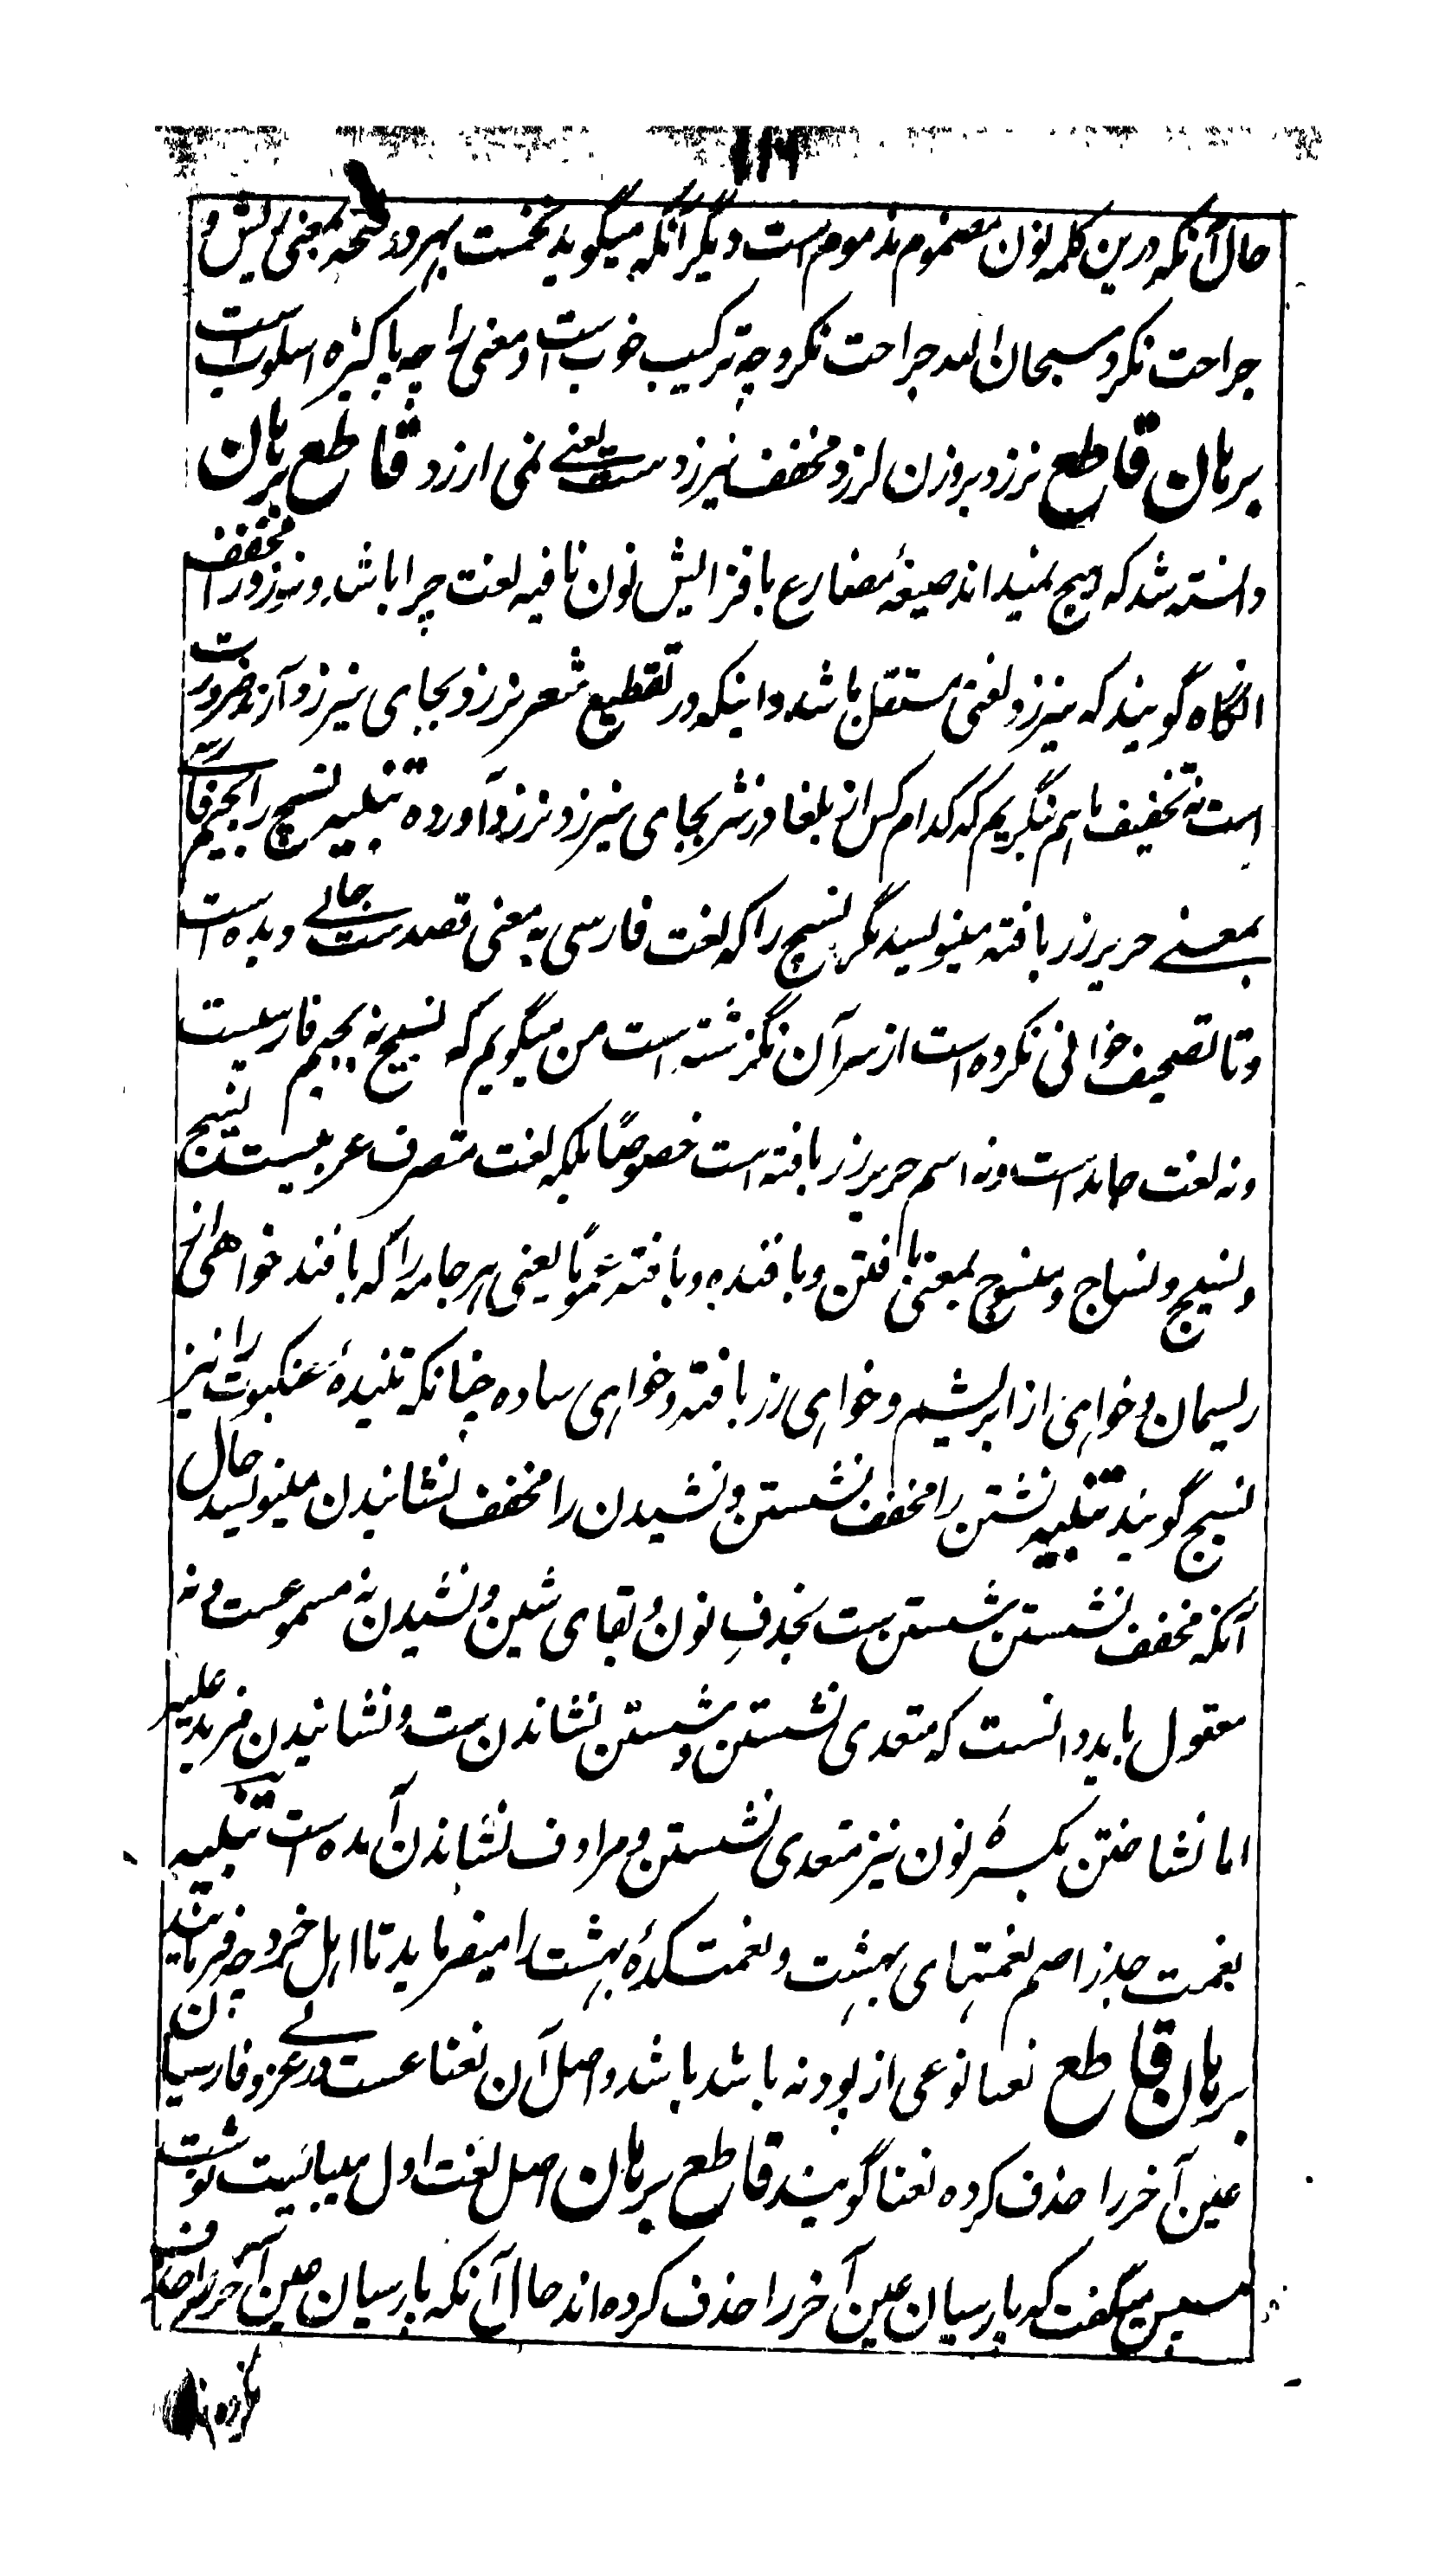 حال آنکه درین کلمه نون مضموم مذموم است دیگر آنکه میگوید نخست بهر دو فتحه بمعنی ریش و
جراحت نکرد سبحان الله جراحت نکرد چه ترکیب خوب است و معنی را چه پاکیزه اسلوب است
برهان قاطع نرزد بروزن لرزد مخفف نیرزدست یعنی نمی ارزد قاطع برهان
دانسته شد که هیچ نمیداند صیغهٔ مضارع بافزایش نون نافیه لغت چرا باشد و نیرزد را مخفف
انگاه گویند که نیرزد لغتی مستقل باشد و اینکه در تقطیع شعر نرزد بجای نیرزد آرند ضرورت
است نه تخفیف ما هم نگریم که کدام کس از بلغا در نثر بجای نیرزد نرزد آورده تنبیه نسیچ را بجیم فارسی
بمعنی حریر زر بافته مینویسد مگر بسیچ را که لغت فارسی به معنی قصدست جائے دیده است
و تا تصحیف خوانی نکرده است از سر آن نگزشته است من میگویم که نسیج نه بجیم فارسیست
و نه لغت جامد است و نه اسم حریر زر بافته است خصوصًا بلکه لغت متصرف عربیست نسج
و نسیج و نساج و منسوج بمعنی بافتن و بافنده و بافته عمومًا یعنی هر جامه را که بافند خواهی از
ریسمان و خواهی از ابریشم و خواهی زر بافته و خواهی ساده چنانکه تنیدهٔ عنکبوت را نیز
نسیج گویند تنبیه نشتن را مخفف نشستن و نشیدن را مخفف نشانیدن مینویسد حال
آنکه مخفف نشستن شستن ست بحذف نون و بقای شین و نشیدن نه مسموعست و نه
معقول باید دانست که متعدی نشستن و شستن نشاندن ست و نشانیدن مزید علیه
اما نشاختن بکسرهٔ نون نیز متعدی نشستن و مرادف نشاندن آمده است تنبیه
نعمت جذر اصم نعمتهای بهشت و نعمت کدهٔ بهشت را میفرماید تا اهل خرد چه فرمایند
برهان قاطع نعنا نوعی از پودنه باشد و اصل آن نعناعست در عربی و فارسیان
عین آخر را حذف کرده نعنا گویند قاطع برهان اصل لغت اول میبایست نوشت
سپس میگفت که پارسیان عین آخر را حذف کرده‌اند حال آنکه پارسیان عین آخر را حذف
نکرده‌اند